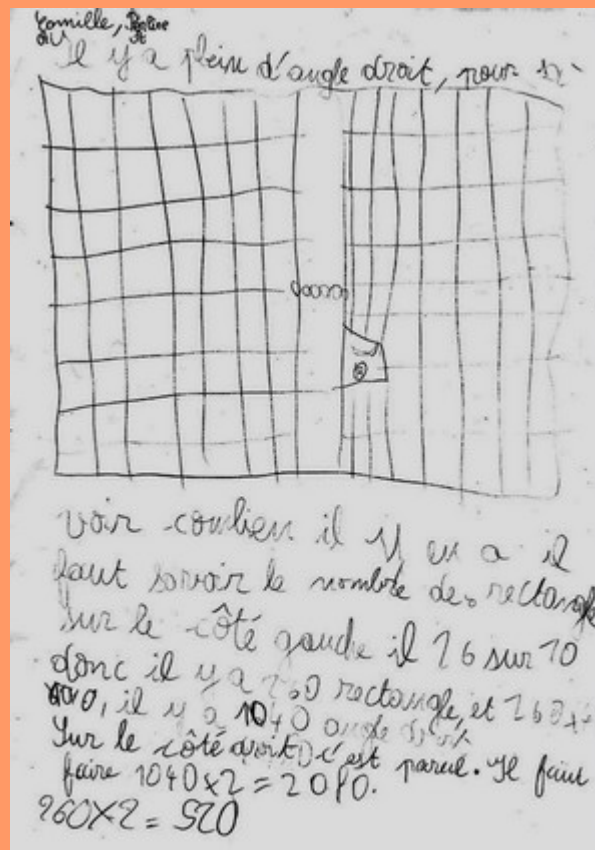 Camille, Pauline
Il y a plein d'angle droit, pour sa
voir combien il y en a il
faut savoir le nombre des rectangle
Sur le côté gauche il 26 sur 10
donc il y a 260 rectangle, et 260x4
il y a 1040 angle droit
Sur le côté droit, c'est pareil. Il faut
faire 1040x2 = 2080.
260x2 = 520